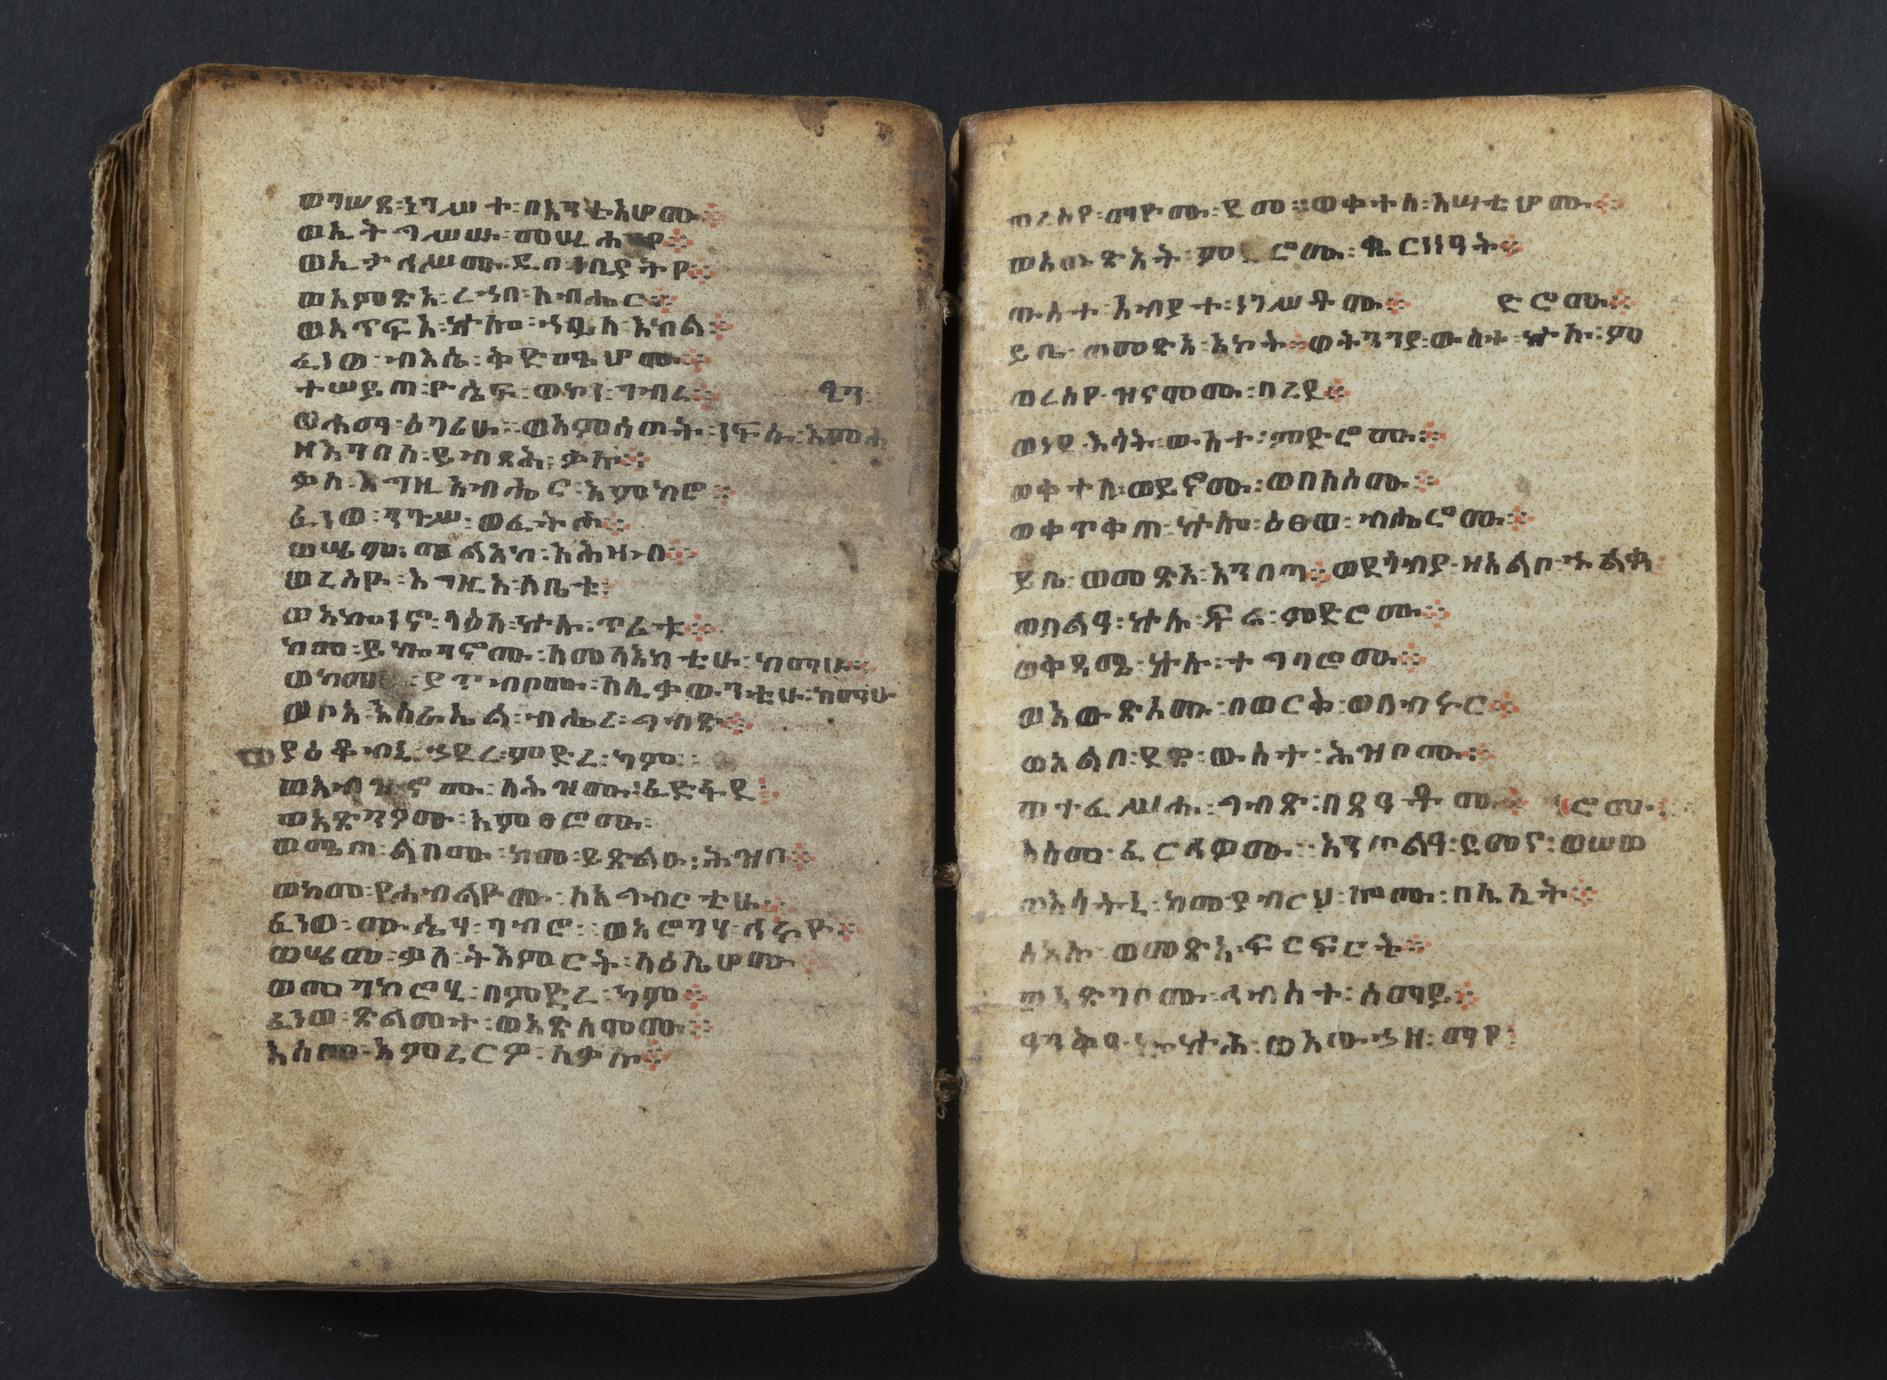 ወገሠጸ፡ነገሥተ፡በእንቲአሆሙ፨
ወኢትግሥሡ፡መሢሐንየ፨
ወኢታሕሥሙ፡ዲበ፡ነቢያትየ፨
ወአምጽአ፡ረኃበ፡ለብሔር፨
ወአጥፍአ፡ኵሎ፡ኃይለ፡እክል፨
ፈነወ፡ብእሴ፡ቅድሜሆሙ፨
ተሠይጠ፡ዮሴፍ፡ወኮነ፡ገብረ፨ ዒን
ወሐማ፡እገሪሁ፡ወአምሰጠት፡ነፍሱ፡እምሐ
ዘእንበለ፡ይብጻሕ፡ቃሉ፨
ቃለ፡እግዚአብሔር፡አመከሮ፨
ፈነወ፡ንጉሥ፡ወፈትሖ፨
ወሤሞ፡መልአከ፡አሕዛበ፨
ወረሰዮ፡እግዚአ፡ለቤቱ፨
ወአኰነኖ፡ላዕለ፡ኵሉ፡ጥሪቱ፨
ከመ፡ይኰንኖሙ፡ለመላእክቲሁ፡ከማሁ፨
ወከመ፡ያጥብቦሙ፡ለሊቃውንቲሁ፡ከማሁ
ወቦአ፡እስራኤል፡ብሔረ፡ግብጽ፨
ወያዕቆብኒ፡ኃደረ፡ምድረ፡ካም፨
ወአብዝኆሙ፡ለሕዝሙ፡ፈድፋደ፨
ወአጽንዖሙ፡እምፀሮሙ፨
ወሜጠ፡ልቦሙ፡ከመ፡ይጽልዑ፡ሕዝቦ፨
ወከመ፡የሐብልዮሙ፡ለአግብርቲሁ፨
ፈነወ፡ሙሴሃ፡ገብሮ፡ወአሮንሃ፡ኅሩዮ፨
ወሤመ፡ቃለ፡ትእምርት፡ላዕሌሆሙ፨
ወመንክሮሂ፡በምድረ፡ካም፨
ፈነወ፡ጽልመተ፡ወአጽለመሙ፨
እስመ፡አምረርዎ፡ለቃሉ፨
ወረሰየ፡ማዮሙ፡ደመ፨ወቀተለ፡እሣቲሆሙ፨
ወአውጽአት፡ምድሮሙ፡ቈርነነዓት፨
ውስተ፡አብያተ፡ነገሥቶሙ፨ ድሮሙ፨
ይቤ፡ወመጽአ፡አኮት፨ወትንንያ፡ውስተ፡ኵሉ፡ም
ወረሰየ፡ዝናሞሙ፡በረደ፨
ወነደ፡እሳት፡ውስተ፡ምድሮሙ፨
ወቀተለ፡ወይኖሙ፡ወበለሶሙ፨
ወቀጥቀጠ፡ኵሎ፡ዕፀወ፡ብሔሮሙ፨
ይቤ፡ወመጽአ፡አንበጣ፨ወደጎብያ፡ዘአልቦ፡ኁልቈ
ወበልዓ፡ኵሉ፡ፍሬ፡ምድሮሙ፨
ወቀዳሜ፡ኵሉ፡ተግባሮሙ፨
ወአውጽኦሙ፡በወርቅ፡ወበብሩር፨
ወአልቦ፡ደዌ፡ውስተ፡ሕዝቦሙ፨
ወተፈሥሐ፡ግብጽ፡በፀዓቶሙ፨ ሮሙ፨
እስመ፡ፈርሀዎሙ፨አንጦልዓ፡ደመና፡ወሠወ
ወእሳትኒ፡ከመ፡ያብርህ፡ሎሙ፡በሌሊት፨
ሰአሉ፡ወመጽአ፡ፍርፍርት፨
ወአጽገቦሙ፡ኅብስተ፡ሰማይ፨
ዓንቅዓ፡ኰኵሕ፡ወአውኃዘ፡ማየ፨